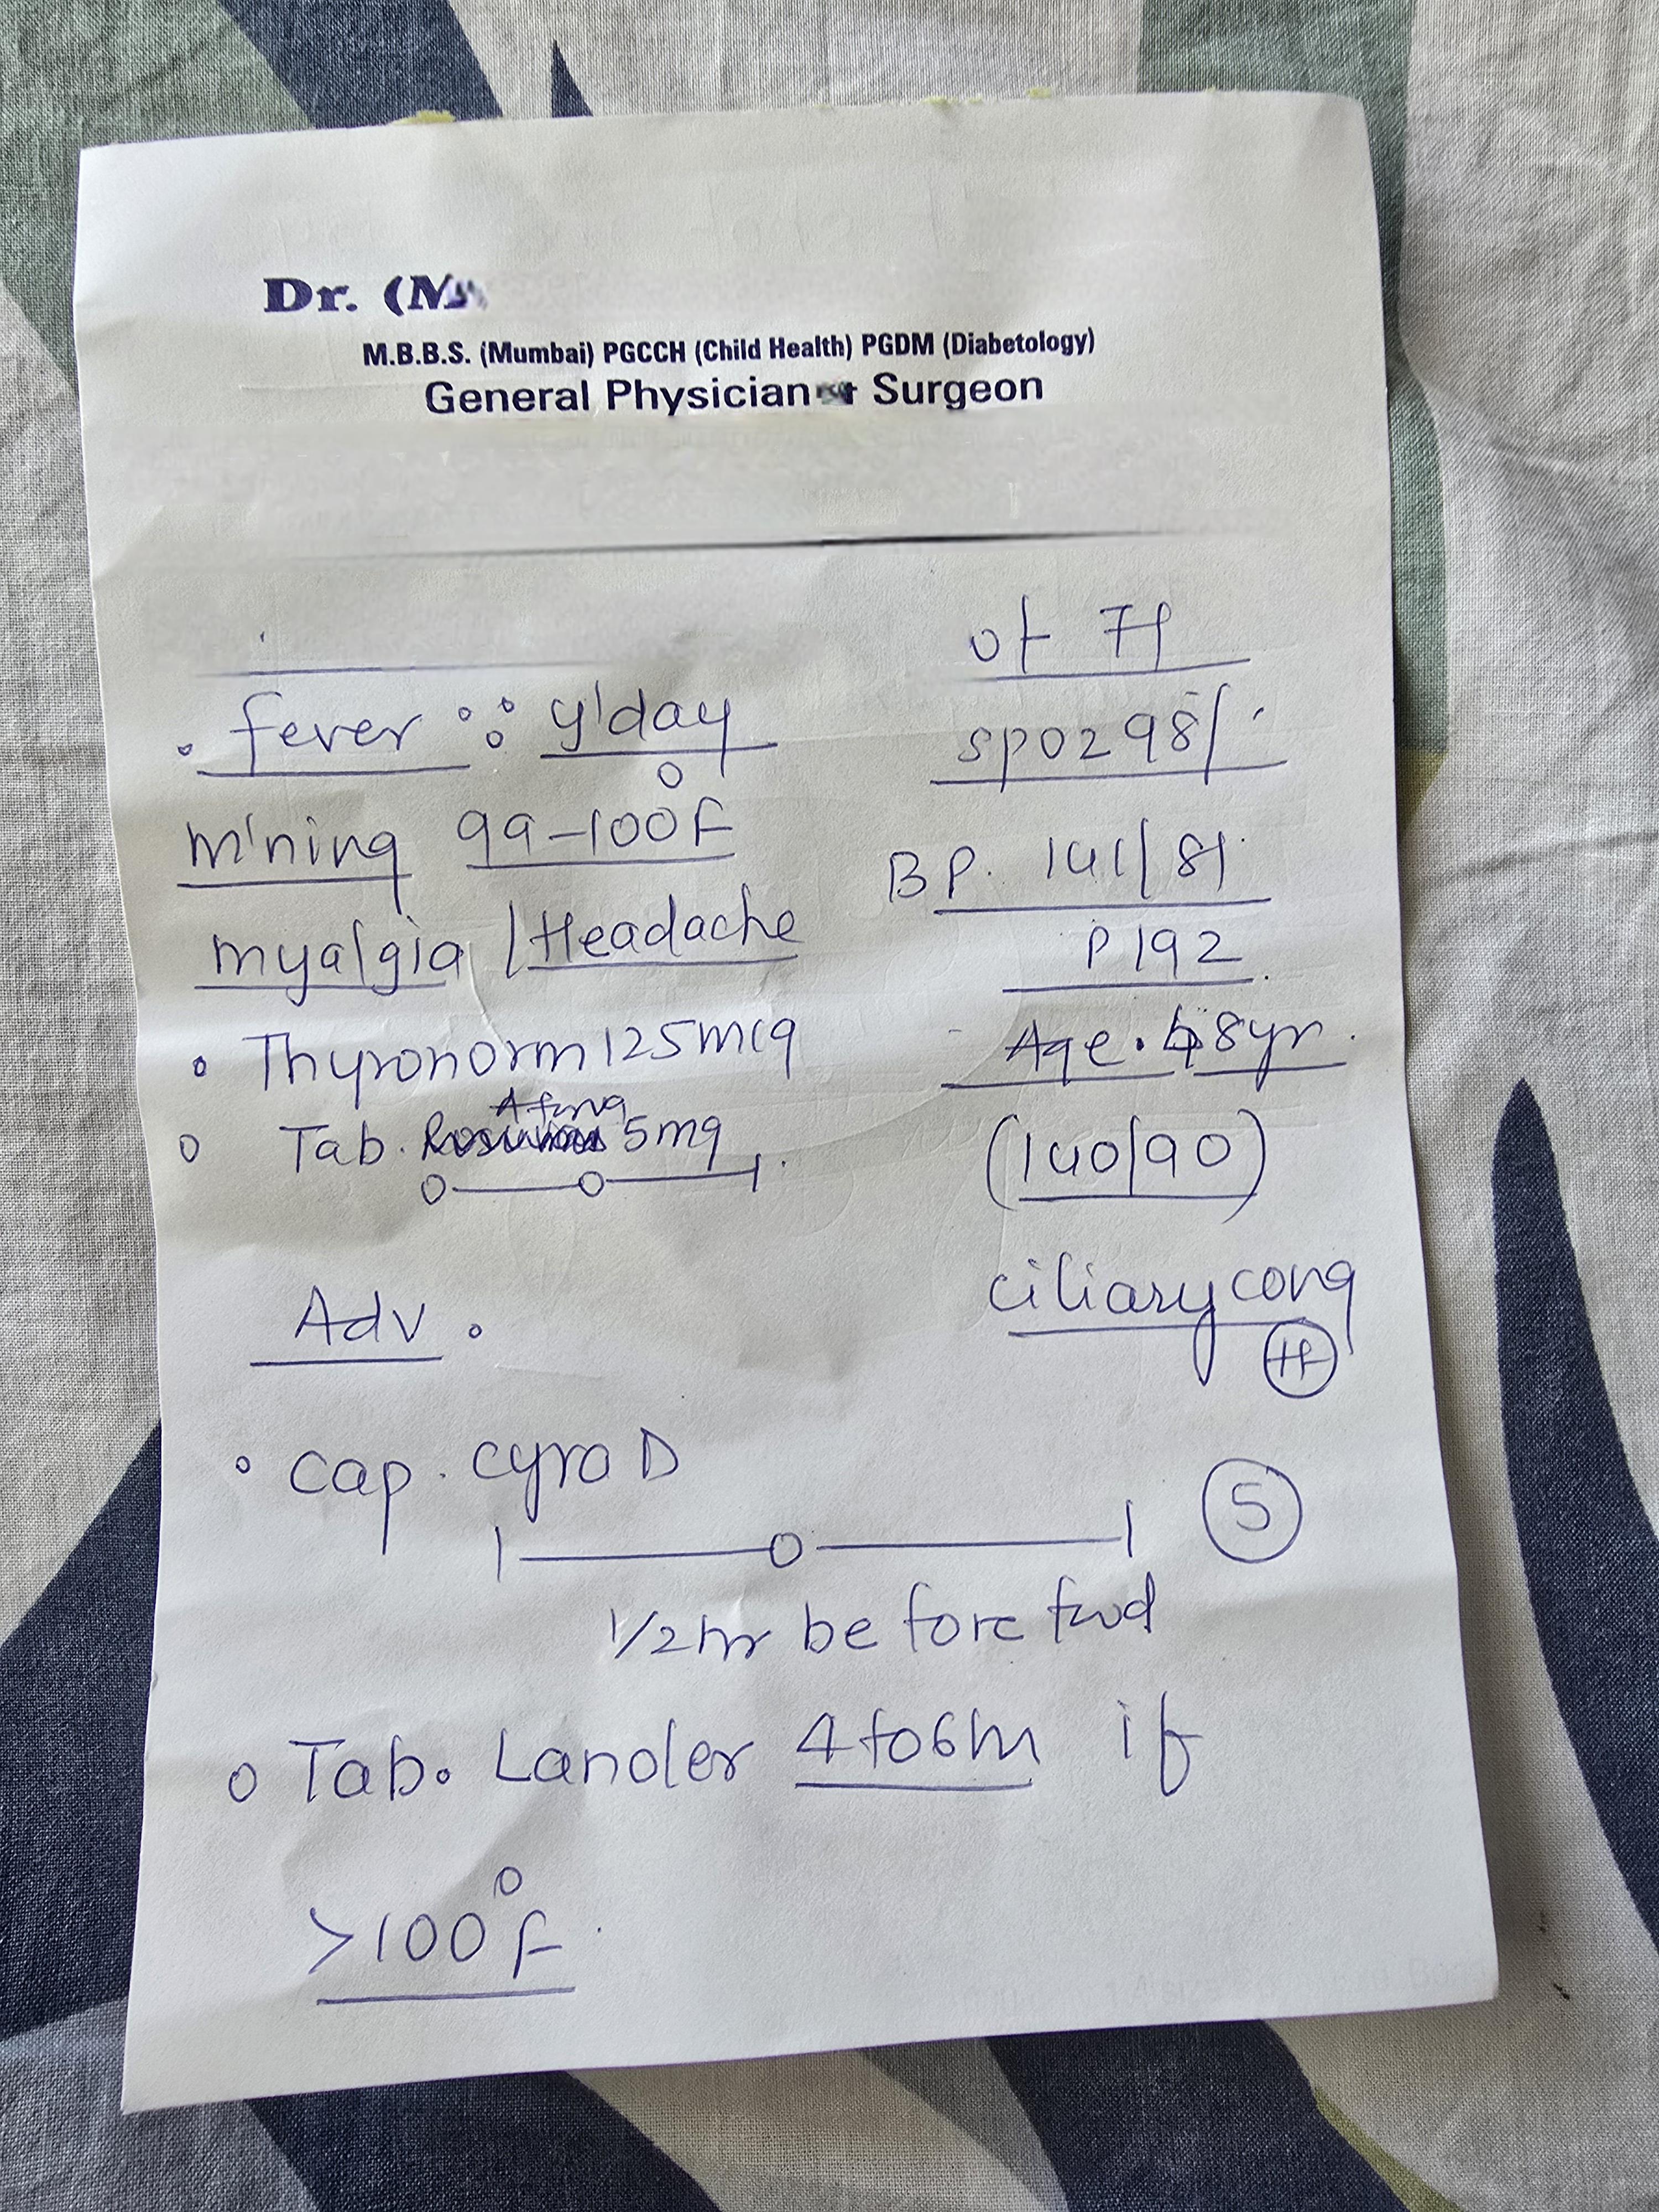 Dr. (M
M.B.B.S. (Mumbai) PGCCH (Child Health) PGDM (Diabetology)
General Physician Surgeon
fever ∵ y'day
m'ning 99-100°F
myalgia / Headache
• Thyronorm 125mcg
Tab. 5mg
0-0-1
Adv.
• Cap. Cyra D
1-0-1
1/2 hr before food
Tab. Lanoler 4 to 6hr if
>100°F
SPO2 98%
BP. 141/81
P 192
Age. 48yr.
(140/90)
ciliary cong
5